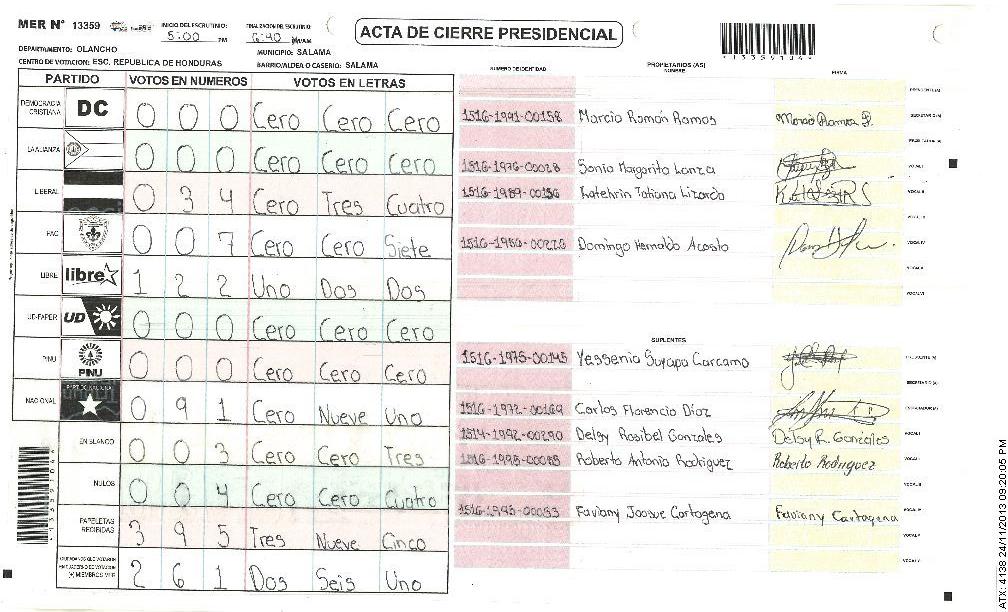 MER Nº 13359 INICIO DEL ESCRUTINIO: 5:00 PM FINALIZACION DEL ESCRUTINIO: 6:40 PM/AM
ACTA DE CIERRE PRESIDENCIAL
DEPARTAMENTO: OLANCHO MUNICIPIO: SALAMA
CENTRO DE VOTACION: ESC. REPUBLICA DE HONDURAS BARRIO/ALDEA O CASERIO: SALAMA
13359104
PARTIDO VOTOS EN NUMEROS VOTOS EN LETRAS
DEMOCRACIA CRISTIANA DC 0 0 0 Cero Cero Cero
LA ALIANZA 0 0 0 Cero Cero Cero
LIBERAL 0 3 4 Cero Tres Cuatro
PAC 0 0 7 Cero Cero Siete
LIBRE libre 1 2 2 Uno Dos Dos
UD-FAPER UD 0 0 0 Cero Cero Cero
PINU PINU 0 0 0 Cero Cero Cero
NACIONAL PARTIDO NACIONAL 0 9 1 Cero Nueve Uno
EN BLANCO 0 0 3 Cero Cero Tres
NULOS 0 0 4 Cero Cero Cuatro
PAPELETAS RECIBIDAS 3 9 5 Tres Nueve Cinco
CIUDADANOS QUE VOTARON EN CUADERNO DE VOTACION (+) MIEMBROS MER 2 6 1 Dos Seis Uno
NUMERO DE IDENTIDAD PROPIETARIOS (AS) NOMBRE FIRMA
PRESIDENTE (A)
1516-1991-00158 Marcio Ramón Ramos Marcio Ramos R. SECRETARIO (A)
ESCRUTADOR (A)
1516-1976-00028 Sonia Margarita Lanza VOCAL I
1516-1989-00156 Katehrin Tatiana Lizardo VOCAL II
VOCAL III
Domingo Hernaldo Acosta VOCAL IV
VOCAL V
VOCAL VI
SUPLENTES
1516-1975-00145 Yessenia Suyapa Carcamo PRESIDENTE (A)
SECRETARIO (A)
1516-1972-00169 Carlos Florencio Díaz ESCRUTADOR (A)
1514-1992-00290 Delsy Rosibel Gonzales Delsy R. Gonzales VOCAL I
Roberto Antonio Rodriguez Roberto Rodriguez VOCAL II
VOCAL III
Faviany Josue Cartagena Faviany Cartagena VOCAL IV
VOCAL V
VOCAL VI
13359104
ATX: 4138 24/11/2013 09:20:05 PM